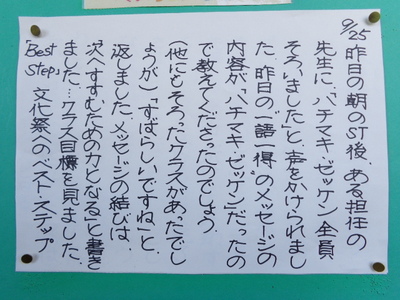 9/25 昨日の朝のST後、ある担任の
先生に、「ハチマキ・ゼッケン全員
そろいました」と、声をかけられまし
た。昨日の"一語一得"のメッセージの
内容が、「ハチマキ・ゼッケン」だったの
で教えてくださったのでしょう。
(他にもそろったクラスがあったでし
ょうが)「すばらしいですね」と、
返しました。メッセージの結びは、
「次へすすむための力となる」と書き
ました…クラス目標を見ました。
「Best Step」 文化祭へのベスト・ステップ